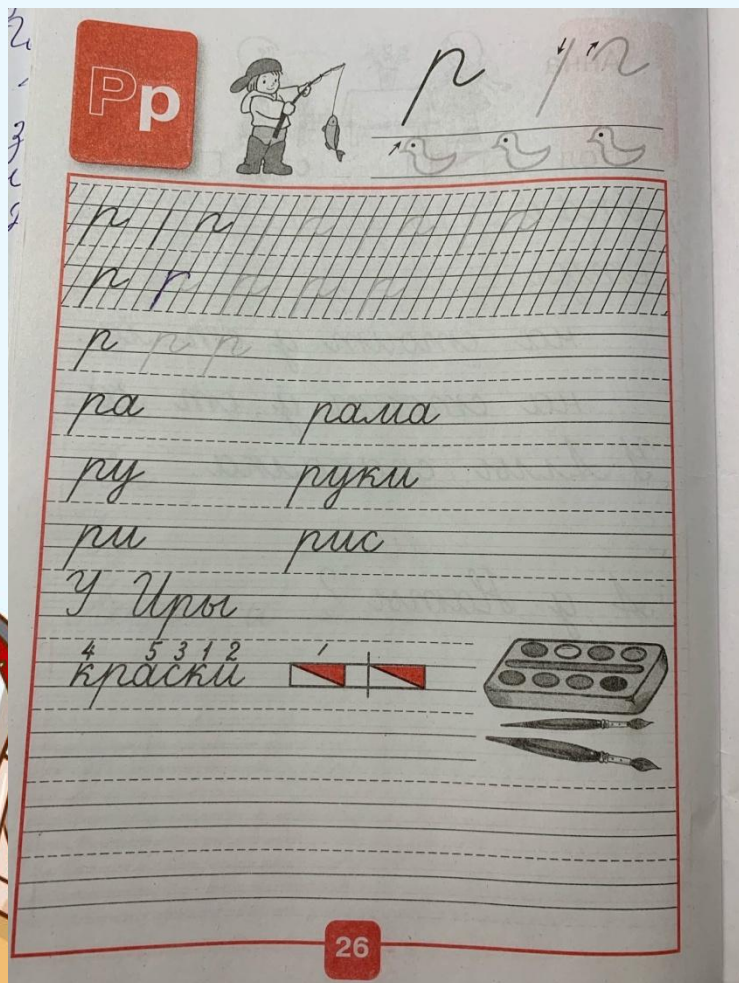 Рр р
р р
р р р р р
р р р
ра рама
ру руки
ри рис
У Иры
4 5 3 1 2
краски
26